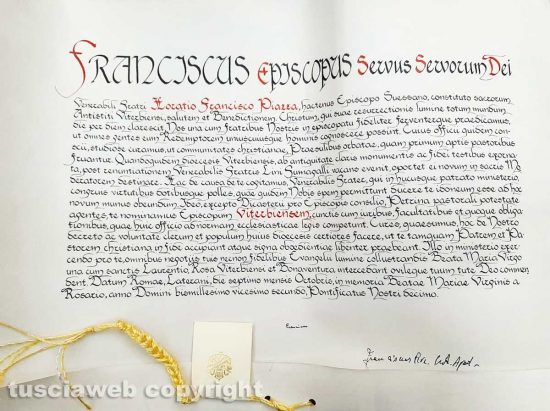 FRANCISCUS EPISCOPUS Servus Servorum Dei
Venerabili Fratri Horatio Francisco Piazza, hactenus Episcopo Suessano, constituto sacrorum
Antistiti Viterbiensi, salutem et Benedictionem. Christum, qui suae resurrectionis lumine totum mundum
die per diem clarescit, Nos una cum fratribus Nostris in episcopatu fideliter ferventerque praedicamus,
ut omnes gentes eum Redemptorem uniuscuiusque hominis agnoscere possint. Cuius officii quidem con-
scii, studiose curamus, ut communitates christianae, Praesulibus orbatae, quam primum aptis pastoribus
fruantur. Quandoquidem dioecesis Viterbiensis, ab antiquitate claris monumentis ac fidei testibus exorna-
ta, post renuntiationem Venerabilis Fratris Lini Fumagalli vacans evenit, oportet ei novum in sacris Mo-
deratorem destinare. Hac de causa de te cogitamus, Venerabilis Frater, qui in hucusque patrato ministerio,
congruis virtutibus dotibusque polles, quae quidem Nobis spem permittunt ducere te idoneum esse ad hoc
novum munus obeundum. Ideo, excepto Dicasterii pro Episcopis consilio, Petrina pastorali potestate
agentes, te nominamus Episcopum Viterbiensem, cunctis cum iuribus, facultatibus et quoque obliga-
tionibus, quae hinc officio ad normam ecclesiasticae legis competunt. Cures, quaesumus, hoc de Nostro
decreto ac voluntate clerum et populum huius dioecesis certiores facere, ut te tamquam Patrem et Pa-
storem christiana in fide accipiant atque signa oboedientiae libenter praebeant. Illo in ministerio exer-
cendo pro te, omnibus negotiis tuis necnon fidelibus Evangelii lumine collustrandis Beata Maria Virgo
una cum sanctis Laurentio, Rosa Viterbiensi et Bonaventura intercedant ovileque tuum tute Deo commen-
dent. Datum Romae, Laterani, die septimo mensis Octobris, in memoria Beatae Mariae Virginis a
Rosario, anno Domini bismillesimo vicesimo secundo, Pontificatus Nostri decimo.
Franciscus
tusciaweb copyright